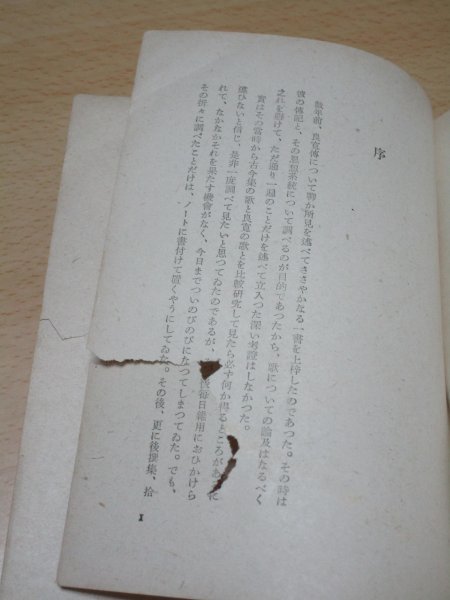 序
数年前、良寛傳について聊か所見を述べてささやかなる一書を上梓したのであつた。その時は
彼の傳記と、その思想系統について調べるのが目的であつたから、歌についての論及はなるべく
之れを避けて、ただ通り一遍のことだけを述べて立入つた深い考證はしなかつた。
實はその當時から古今集の歌と良寛の歌とを比較研究して見たら必ず何か得るところがあるに
違ひないと信じ、是非一度調べて見たいと思つてゐたのであるが、後毎日雜用におひかけら
れて、なかなかそれを果たす機會がなく、今日までついのびのびになつてしまつてゐた。でも、
その折々に調べたことだけは、ノートに書付けて置くやうにしてゐた。その後、更に後撰集、拾
I